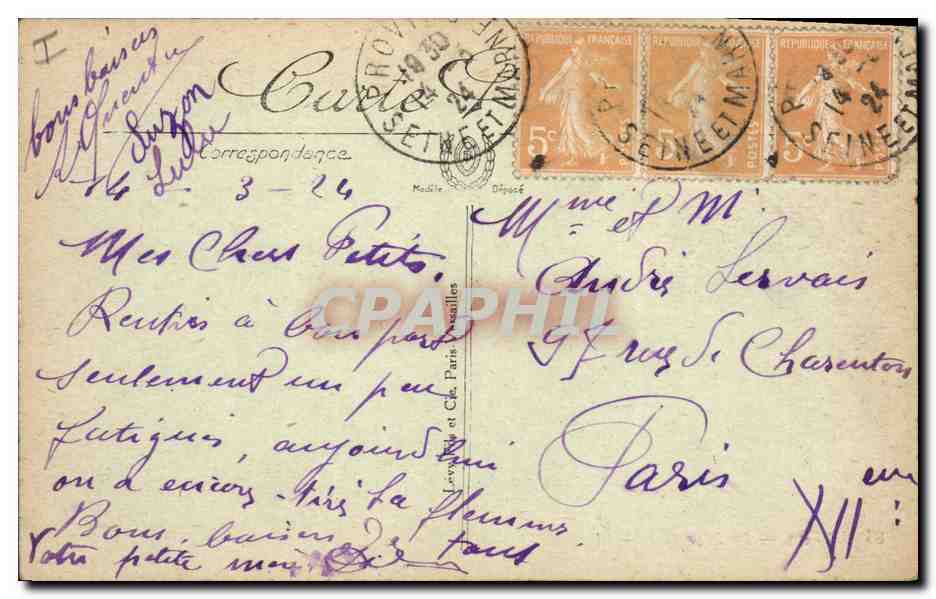 bons baisers
Suzon
Lulu
Carte Postale
Correspondance
Modèle Déposé
PROVINS
SEINE ET MARNE
19 30
14
24
REPUBLIQUE FRANÇAISE
5c
REPUBLIQUE FRANÇAISE
5c
POSTES
REPUBLIQUE FRANÇAISE
5c
SEINE ET MARNE
SEINE ET MARNE
14
24
14 - 3 - 24
Mes Chers Petits.
Rentrés à bon port
seulement un peu
fatigués, aujourd'hui
on a encore tiré la flemme
Bons baisers de tous
Votre petite mère
Lévy Fils et Cie, Paris-Versailles
Mme et M.
André Servais
97 rue de Charenton
Paris
XII eme
CPAPHIL